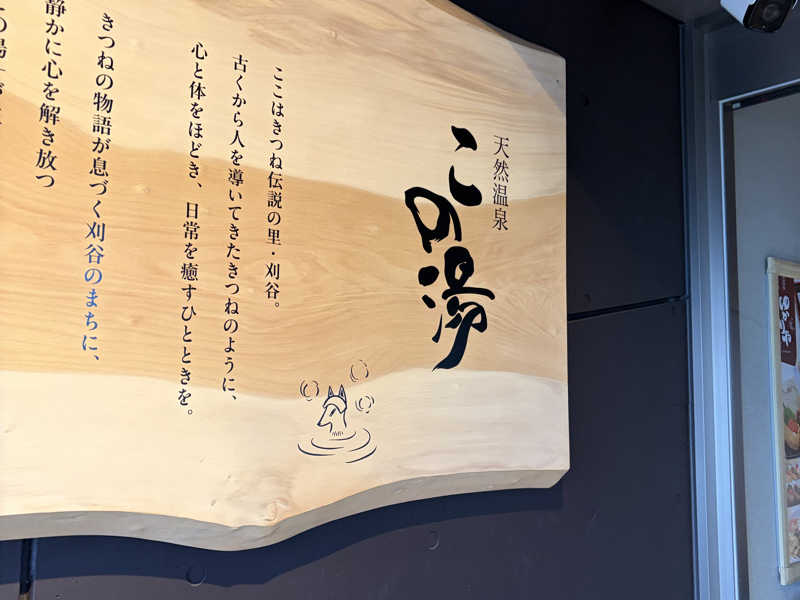 天然温泉
この湯
ここはきつね伝説の里・刈谷。
古くから人を導いてきたきつねのように、
心と体をほどき、日常を癒すひとときを。
きつねの物語が息づく刈谷のまちに、
静かに心を解き放つ
の湯